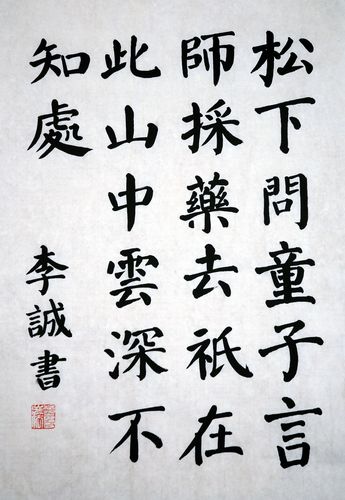 松下問童子言
師採藥去祇在
此山中雲深不
知處
李誠書